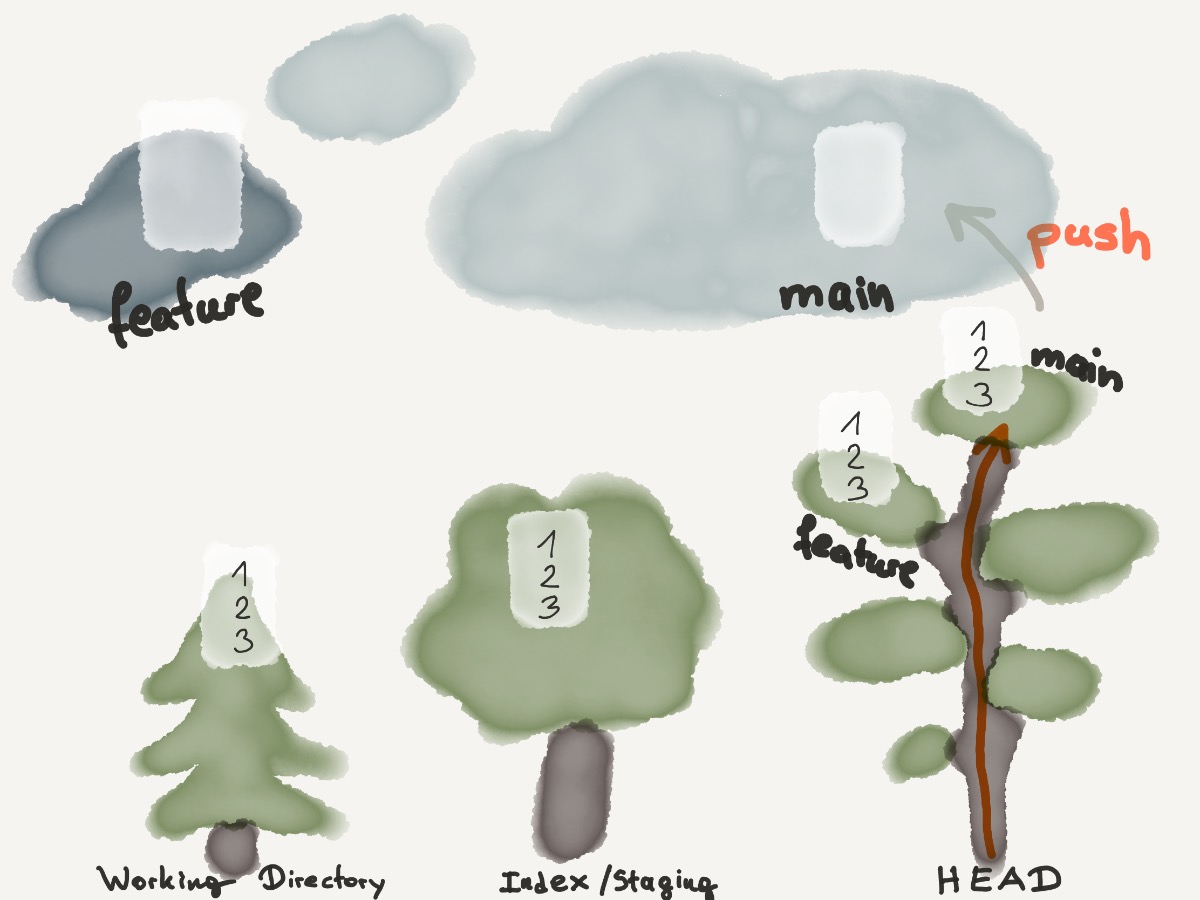 push
feature
main
1
2
3
main
1
2
3
feature
1
2
3
1
2
3
Working Directory
Index/Staging
HEAD